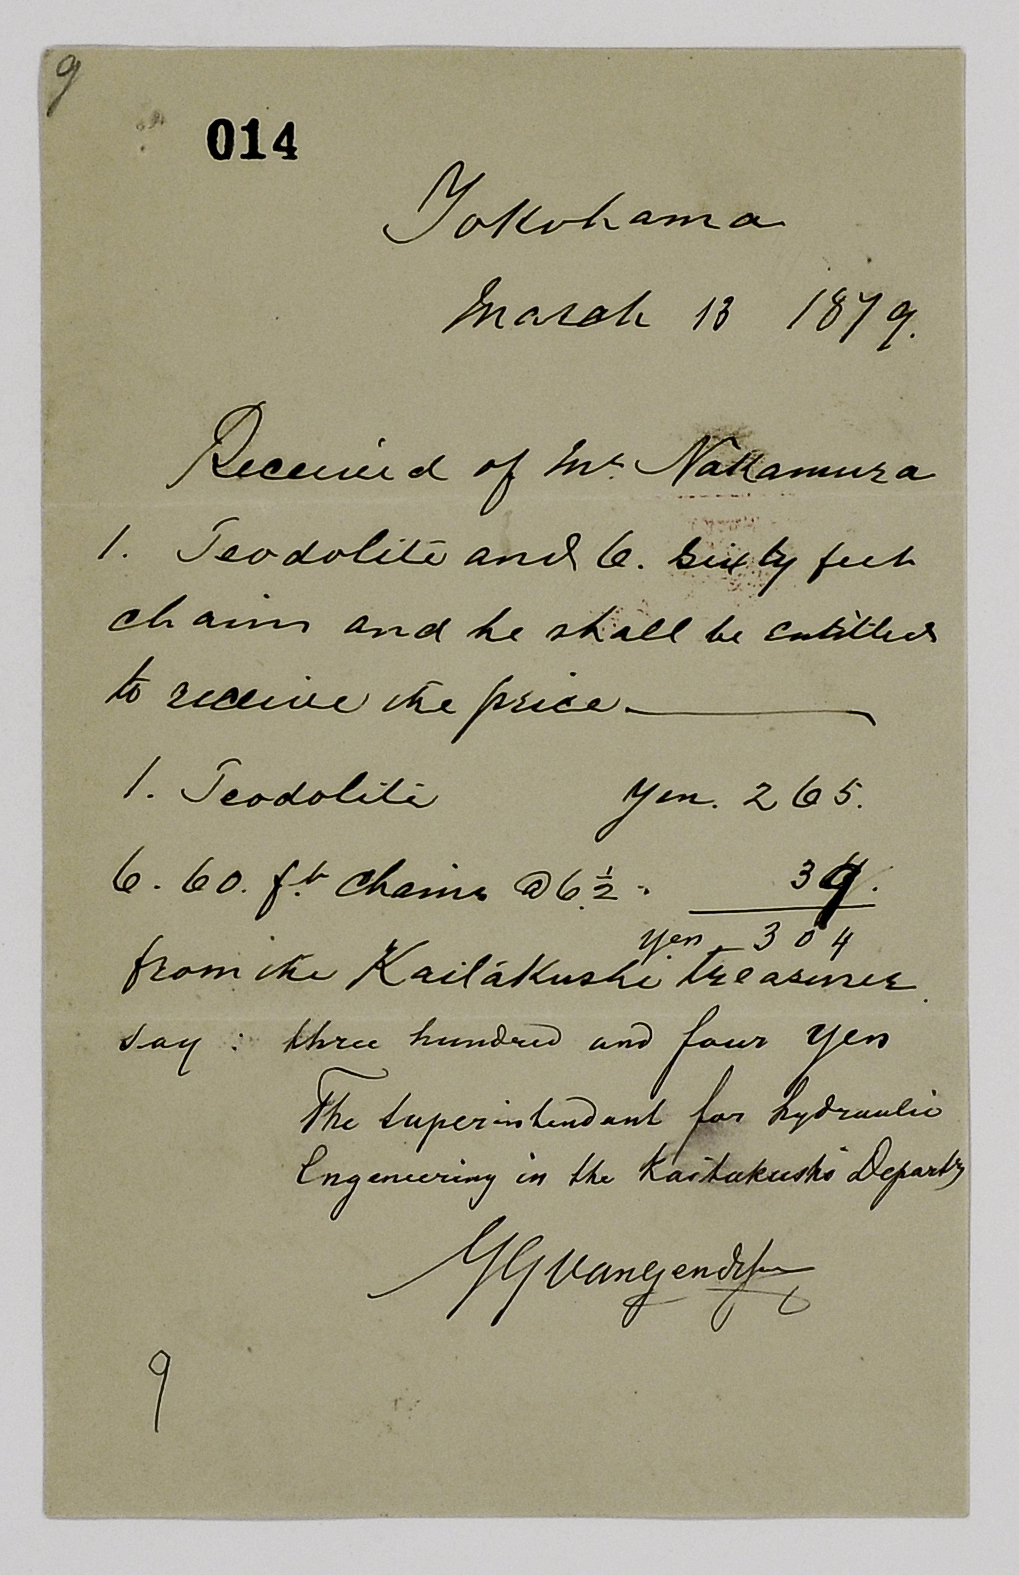 9
014
Yokohama
March 13 1879.
Received of Mr. Nakamura
1. Teodolite and 6. sixty feet
chains and he shall be entitled
to receive the price
1. Teodolite Yen. 265.
6. 60. ft chains @ 6 1/2 . 39.
yen 304
from the Kaitákushi treasurer
say : three hundred and four yen
The superintendant for hydraulic
Engeneering in the Kaitakushi Departt
9